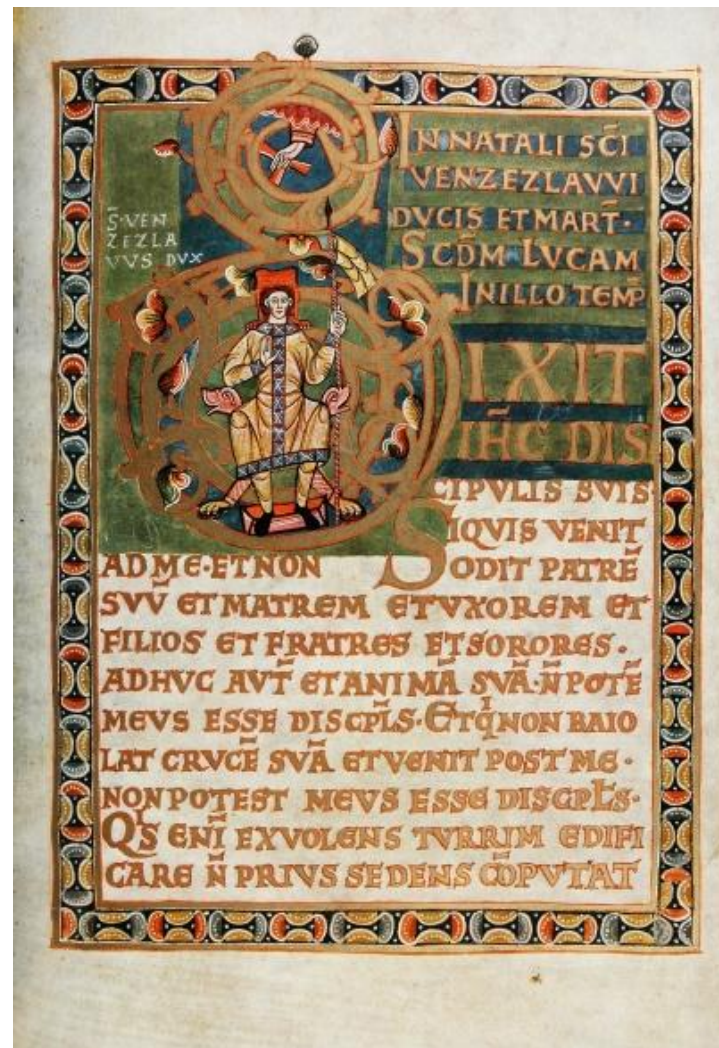 IN NATALI SC̄I
VENZEZLAVVI
DVCIS ET MART̄·
SCD̄M LVCAM
IN ILLO TEMP̄
S̄·VEN
ZEZLA
VVS DVX
DIXIT
IH̄C DIS
CIPVLIS SVIS·
SIQVIS VENIT
AD ME·ET NON ODIT PATRĒ
SVV̄ ET MATREM ET VXOREM ET
FILIOS ET FRATRES ET SORORES·
ADHVC AVT̄ ET ANIMĀ SVĀ·N̄ POTĒ
MEVS ESSE DISCPL̄S·ET QͥNON BAIO
LAT CRVCĒ SVĀ ET VENIT POST ME·
NON POTEST MEVS ESSE DISCPL̄S·
QͥS ENĪ EX VOLENS TVRRIM EDIFI
CARE N̄ PRIVS SEDENS CŌPVTAT